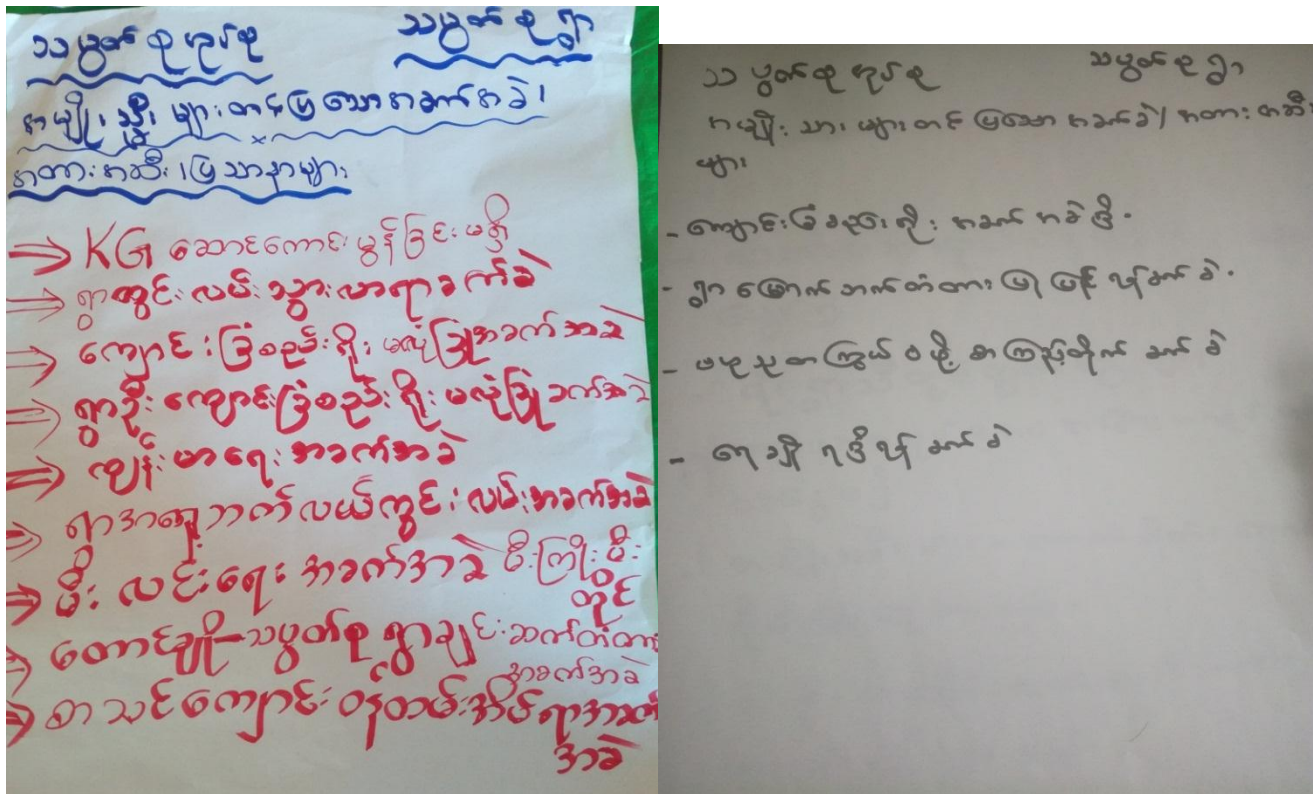 သပွတ်စုအုပ်စု သပွတ်စုရွာ
အမျိုးသ္မီးများတင်ပြသောအခက်အခဲ၊
အတားအဆီး၊ပြသာနာများ
⇒ KG ဆောင်ကောင်းမွန်ခြင်းမရှိ
⇒ ရွာတွင်းလမ်းသွားလာရာခက်ခဲ
⇒ ကျောင်းခြံစည်းရိုးမလုံခြုံအခက်အခဲ
⇒ ရွာဦးကျောင်းခြံစည်းရိုးမလုံခြုံခက်အခဲ
⇒ ကျန်းမာရေးအခက်အခဲ
⇒ ရွာအရှေ့ဘက်လယ်ကွင်းလမ်းအခက်အခဲ
⇒ မီးလင်းရေးအခက်အခဲ မီးကြိုးမီး
တိုင်
⇒ တောင်ချို–သပွတ်စုရွာချင်းဆက်တံတား
အခက်အခဲ
⇒ စာသင်ကျောင်းဝန်ထမ်းအိမ်ရာအခက်
အခဲ
သပွတ်စုအုပ်စု သပွတ်စုရွာ
အမျိုးသားများတင်ပြသောအခက်ခဲ/အတားအဆီး
များ
- ကျောင်းခြံစည်းရိုးအခက်အခဲရှိ.
- ရွာမြောက်ဘက်တံတားပြုပြင်ရန်ခက်ခဲ.
- ဗဟုသုတကြွယ်ဝဖို့စာကြည့်တိုက်ခက်ခဲ
- ရေချိုရရှိရန်ခက်ခဲ